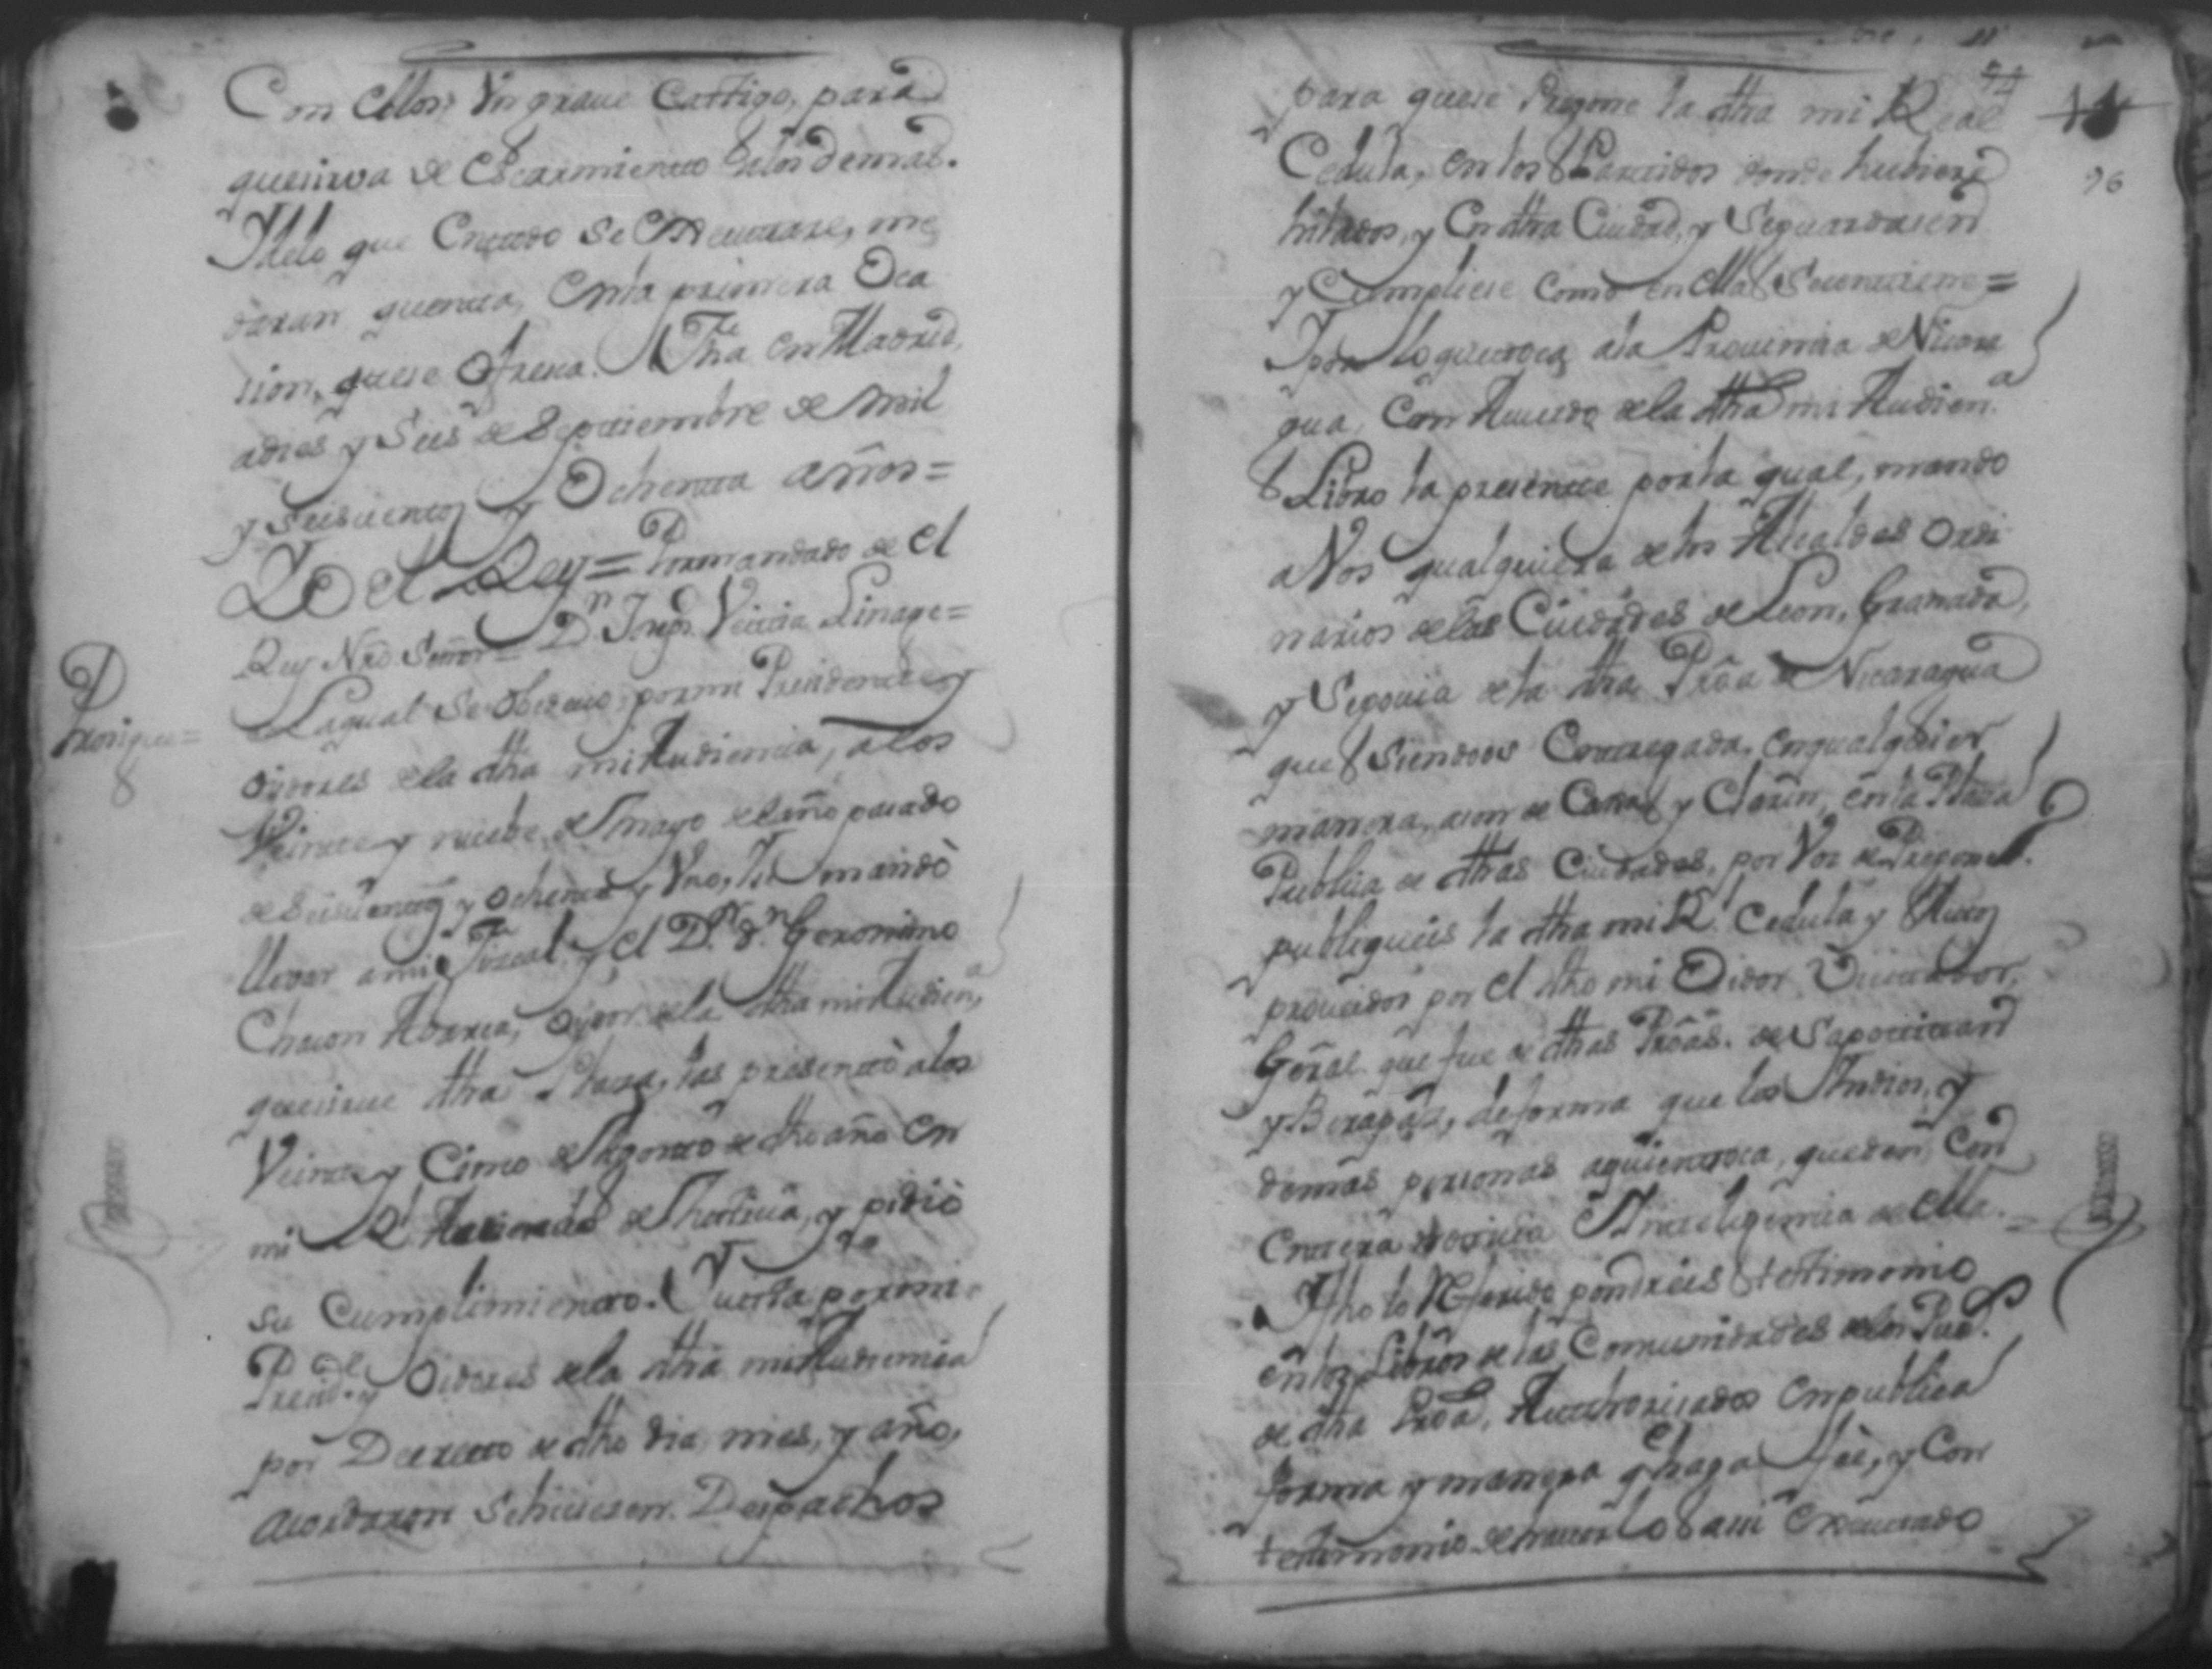 Con Ellos, Vn graue Castigo, para
quesirva de Escarmiento alos demas.
Ydelo que Enesto se Executare, me
daran quenta, Enla primera Oca
sion, quese Ofresca. Fha en Madrid,
adies y Seis de Septiembre de mil
y seiscientos y Ochenta años=
Yo el Rey= Pormandado de el
Rey Nro Señor= Dn Joseph Veitia Linage=
Prosigue=
Laqual Se Obedecio, pormi Presidente y
oydores dela dha mi Audiencia, alos
Veinte y nuebe de Mayo del año pasado
de Seiscientos y ochenta y Vno, y se mandò
llevar ami Fiscal. y el Dr. dn Geronimo
Chacon Abarca, oydor dela dha mi Audiena,
quesirue dha Plaza, las presentò alos
Veinte y Cinco de Agosto de dho año En
mi Rl Acuerdo de Justicia, y pidiò
su Cumplimiento. Y vista pormi
Presidte y Oidores dela dha mi Audiencia
por Decreto de dho dia, mes, y año,
acordaron Sehiciesen Despachos
11
96
para quese Pregone la dha mi Real
Cedula, en los Partidos donde hubiere
hilados, y En dha Ciudad, y Seguardasen
y Cumpliese como en ella Secontiene=
Ypor loquetoca ala Prouincia de Nicara
gua, Con Acuerdo dela dha mi Audiena
Libro la presente porla qual, mando
aVos qualquiera delos Alcaldes Ordi
narios delas Ciudades de Leon, Granada,
y Segouia dela dha Proa de Nicaragua
que Siendoos Entregada, enqualquier
manera, a son de Caxas y Clarin, en la Plaza
Publica de dhas Ciudades, por Voz de Pregonero.
publiqueis la dha mi Rl Cedula y Autos
proueidos por el dho mi Oidor Visitador,
Genral que fue de dhas Proas. de Sapotitlan
y Berapaz, deforma que los Yndios, y
demas personas aquientoca, queden, Con
Entera noticia Ynteligencia de ella.=
Yfho lo Referido pondreis testimonio
en los Libros de las Comunidades delos Pueos
de dha Proa, Authorisados Enpublica
forma y manera q haga fee, y Con
testimonio dehauerlo assi Executado